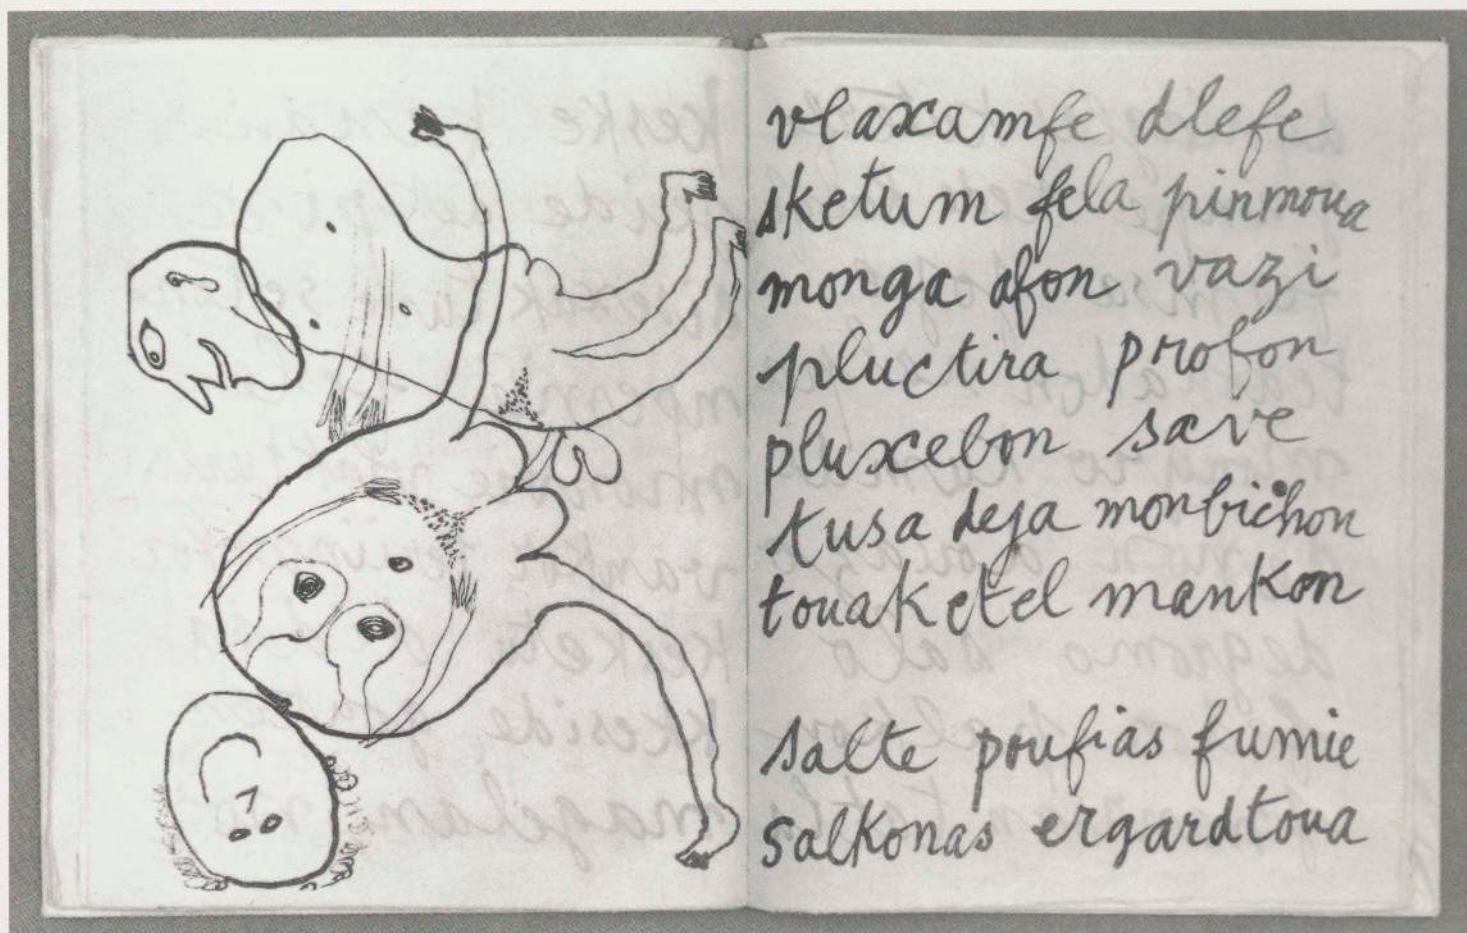 vlaxamfe dlefe
sketum fela pinmoua
monga afon vazi
pluctira profon
pluxebon save
tusa deja monbichon
touaketel mankon
salte poufias fumie
salkonas ergardtoua